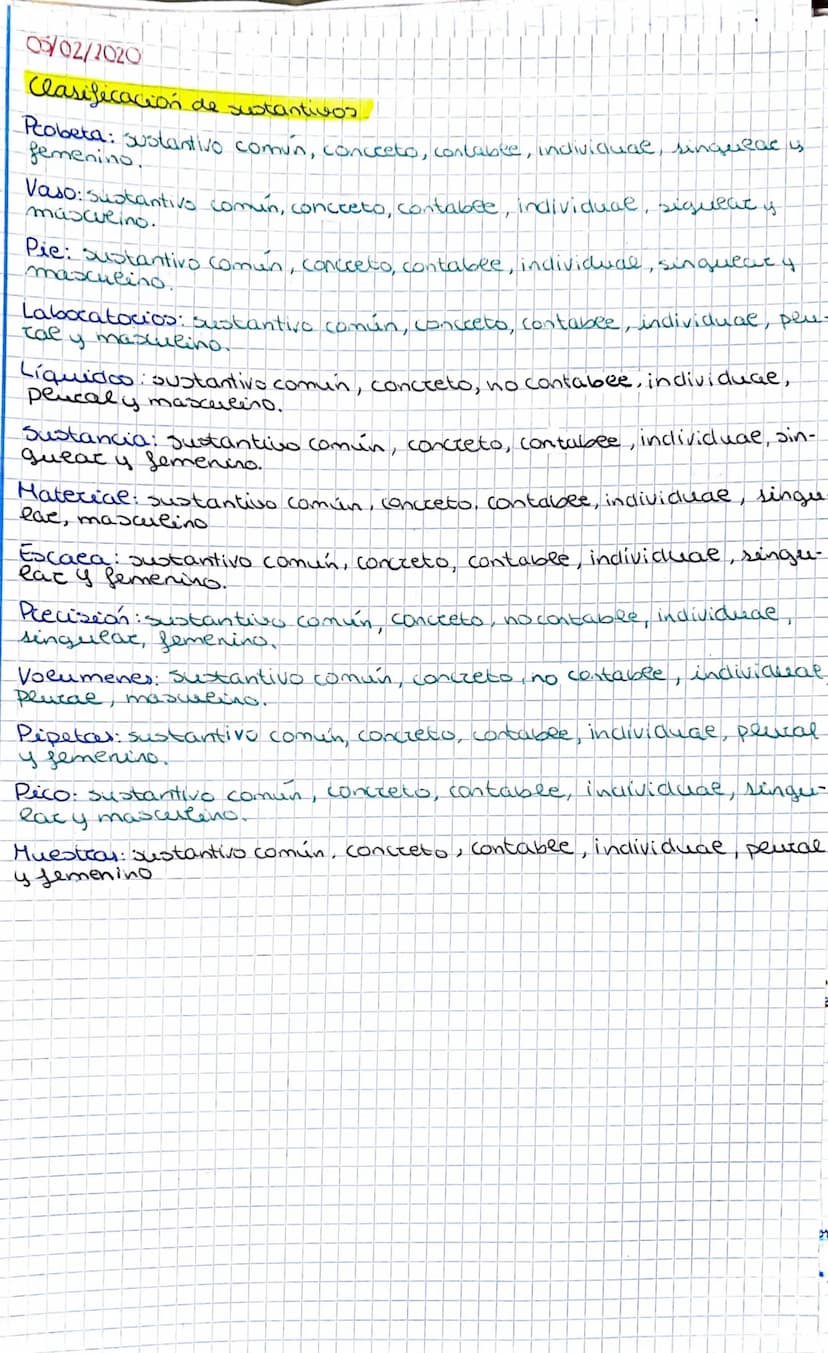 05/02/2020
Clasificación de sustantivos
Probeta: sustantivo común, concreto, contable, individual, singular y
femenino.
Vaso: sustantivo común, concreto, contable, individual, sigular y
masculino.
Pie: sustantivo común, concreto, contable, individual, singular y
masculino.
Laboratorios: sustantivo común, concreto, contable, individual, plu-
ral y masculino.
Líquidos: sustantivo común, concreto, no contable, individual,
plural y masculino.
Sustancia: sustantivo común, concreto, contable, individual, sin-
gular y femenino.
Material: sustantivo común, concreto, contable, individual, singu
lar, masculino
Escala: sustantivo común, concreto, contable, individual, singu-
lar y femenino.
Precisión: sustantivo común, concreto, no contable, individual,
singular, femenino.
Volumenes: sustantivo común, concreto, no contable, individual
plural, masculino.
Pipetas: sustantivo común, concreto, contable, individual, plural
y femenino.
Pico: sustantivo común, concreto, contable, individual, singu-
lar y masculino.
Muestras: sustantivo común, concreto, contable, individual, plural
y femenino